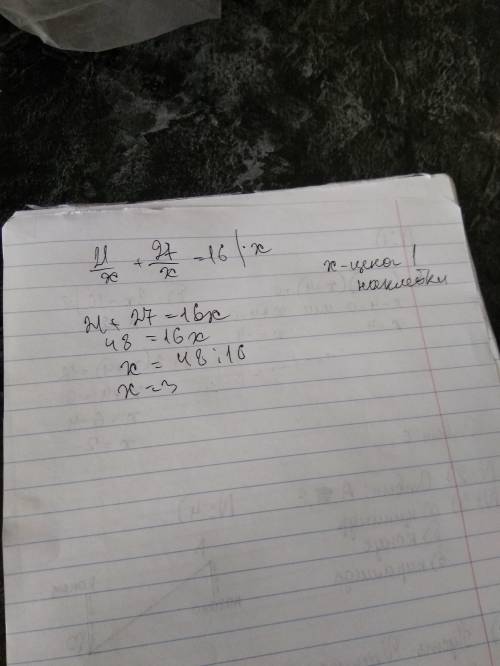 21/x + 27/x = 16 | · x
x - цена 1 наклейки
21 + 27 = 16x
48 = 16x
x = 48 : 16
x = 3